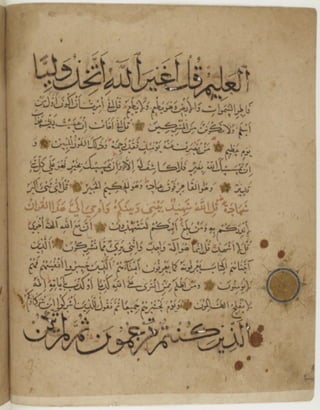 العليم قل أغير الله أتخذ وليا
فاطر السموات والأرض وهو يطعم ولا يطعم قل إني أمرت أن أكون أول من
أسلم ولا تكونن من المشركين قل إني أخاف إن عصيت ربي عذاب
يوم عظيم من يصرف عنه يومئذ فقد رحمه وذلك الفوز المبين و
إن يمسسك الله بضر فلا كاشف له إلا هو وإن يمسسك بخير فهو على كل شيء
قدير وهو القاهر فوق عباده وهو الحكيم الخبير قل أي شيء أكبر
شهادة قل الله شهيد بيني وبينكم وأوحي إلي هذا القرآن
لأنذركم به ومن بلغ أئنكم لتشهدون أن مع الله آلهة أخرى
قل لا أشهد قل إنما هو إله واحد وإنني بريء مما تشركون الذين
آتيناهم الكتاب يعرفونه كما يعرفون أبناءهم الذين خسروا أنفسهم فهم
لا يؤمنون ومن أظلم ممن افترى على الله كذبا أو كذب بآياته إنه
لا يفلح الظالمون ويوم نحشرهم جميعا ثم نقول للذين أشركوا أين شركاؤكم
الذين كنتم تزعمون ثم لم تكن